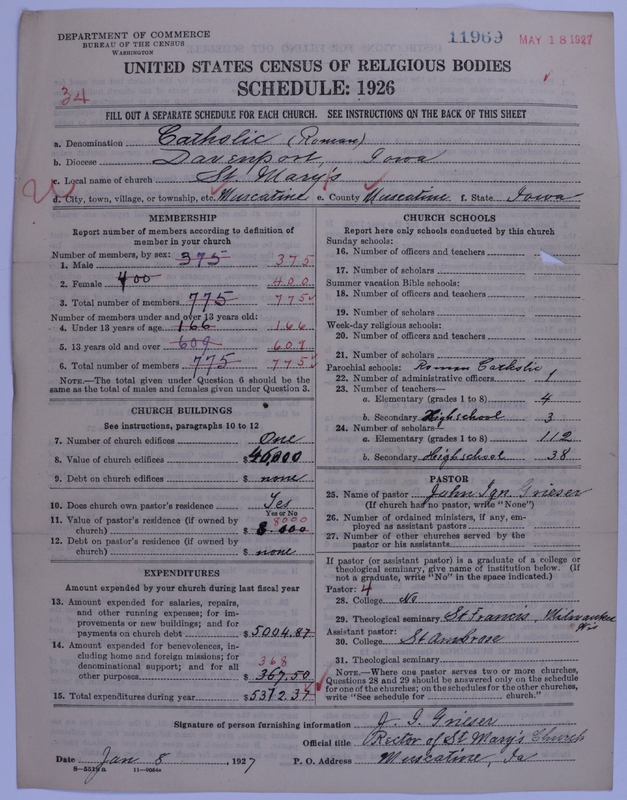 DEPARTMENT OF COMMERCE
BUREAU OF THE CENSUS
WASHINGTON
11969 MAY 18 1927
UNITED STATES CENSUS OF RELIGIOUS BODIES
SCHEDULE: 1926
34
FILL OUT A SEPARATE SCHEDULE FOR EACH CHURCH. SEE INSTRUCTIONS ON THE BACK OF THIS SHEET
a. Denomination Catholic (Roman)
b. Diocese Davenport, Iowa
c. Local name of church St. Mary's
d. City, town, village, or township, etc. Muscatine e. County Muscatine f. State Iowa
MEMBERSHIP
Report number of members according to definition of
member in your church
Number of members, by sex:
1. Male 375 375
2. Female 400 400
3. Total number of members 775 775
Number of members under and over 13 years old:
4. Under 13 years of age 166 166
5. 13 years old and over 609 609
6. Total number of members 775 775
NOTE.—The total given under Question 6 should be
the same as the total of males and females given under Question 3.
CHURCH BUILDINGS
See instructions, paragraphs 10 to 12
7. Number of church edifices One
8. Value of church edifices $ 40,000
9. Debt on church edifices $ none
10. Does church own pastor's residence Yes
Yes or No
11. Value of pastor's residence (if owned by 8000
church) $ 8 000
12. Debt on pastor's residence (if owned by
church) $ none
EXPENDITURES
Amount expended by your church during last fiscal year
13. Amount expended for salaries, repairs,
and other running expenses; for im-
provements or new buildings; and for
payments on church debt $ 5004.87
14. Amount expended for benevolences, in-
cluding home and foreign missions; for
denominational support; and for all 368
other purposes $ 367.50
15. Total expenditures during year $ 5372.37
CHURCH SCHOOLS
Report here only schools conducted by this church
Sunday schools:
16. Number of officers and teachers
17. Number of scholars
Summer vacation Bible schools:
18. Number of officers and teachers
19. Number of scholars
Week-day religious schools:
20. Number of officers and teachers
21. Number of scholars
Parochial schools: Roman Catholic
22. Number of administrative officers 1
23. Number of teachers—
a. Elementary (grades 1 to 8) 4
b. Secondary High school 3
24. Number of scholars—
a. Elementary (grades 1 to 8) 112
b. Secondary High school 38
PASTOR
25. Name of pastor John Ign. Grieser
(If church has no pastor, write "None")
26. Number of ordained ministers, if any, em-
ployed as assistant pastors
27. Number of other churches served by the
pastor or his assistants
If pastor (or assistant pastor) is a graduate of a college or
theological seminary, give name of institution below. (If
not a graduate, write "No" in the space indicated.)
Pastor: 4
28. College No
29. Theological seminary St Francis Milwaukee Wis
Assistant pastor:
30. College St Ambrose
31. Theological seminary
NOTE.—Where one pastor serves two or more churches,
Questions 28 and 29 should be answered only on the schedule
for one of the churches; on the schedules for the other churches,
write "See schedule for church."
Signature of person furnishing information J. I. Grieser
Official title Rector of St Mary's Church
Date Jan 8, 1927 P. O. Address Muscatine, Ia
8—5519 a 11—9064a